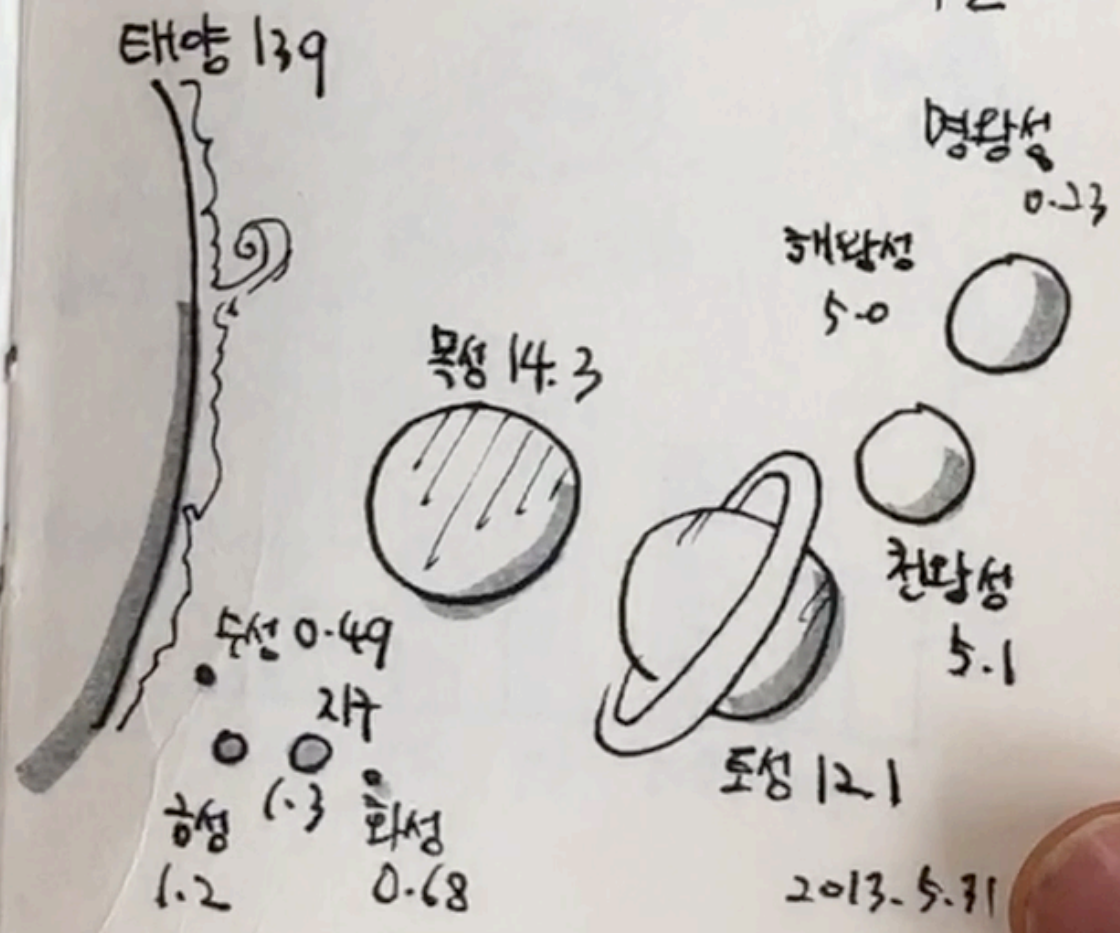 태양 139
명왕성
0.23
해왕성
5.0
목성 14.3
천왕성
5.1
수성 0.49
지구
1.3
금성
1.2
화성
0.68
토성 12.1
2013.5.31